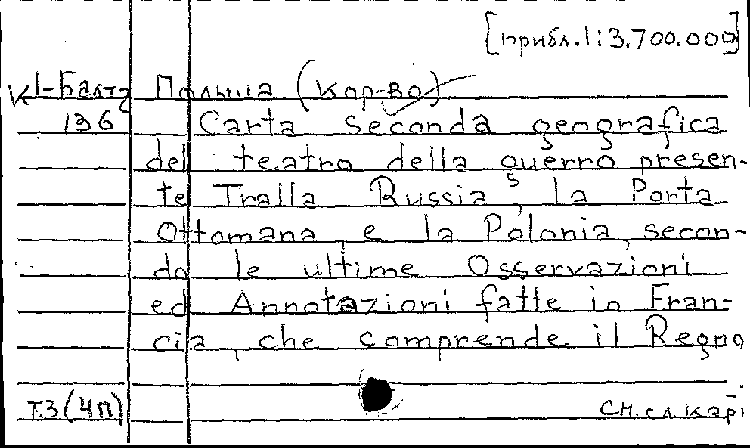 [прибл. 1:3.700.000]
К1-Балт2 Польша (Кор-во)
136 Carta seconda geografica
del teatro della guerro presen-
te Tralla Russia, la Porta
Ottomana, e la Polonia, secon-
do le ultime Osservazioni
ed Annotazioni fatte in Fran-
cia, che comprende il Regno
Т.3 (4п) См. сл. карт